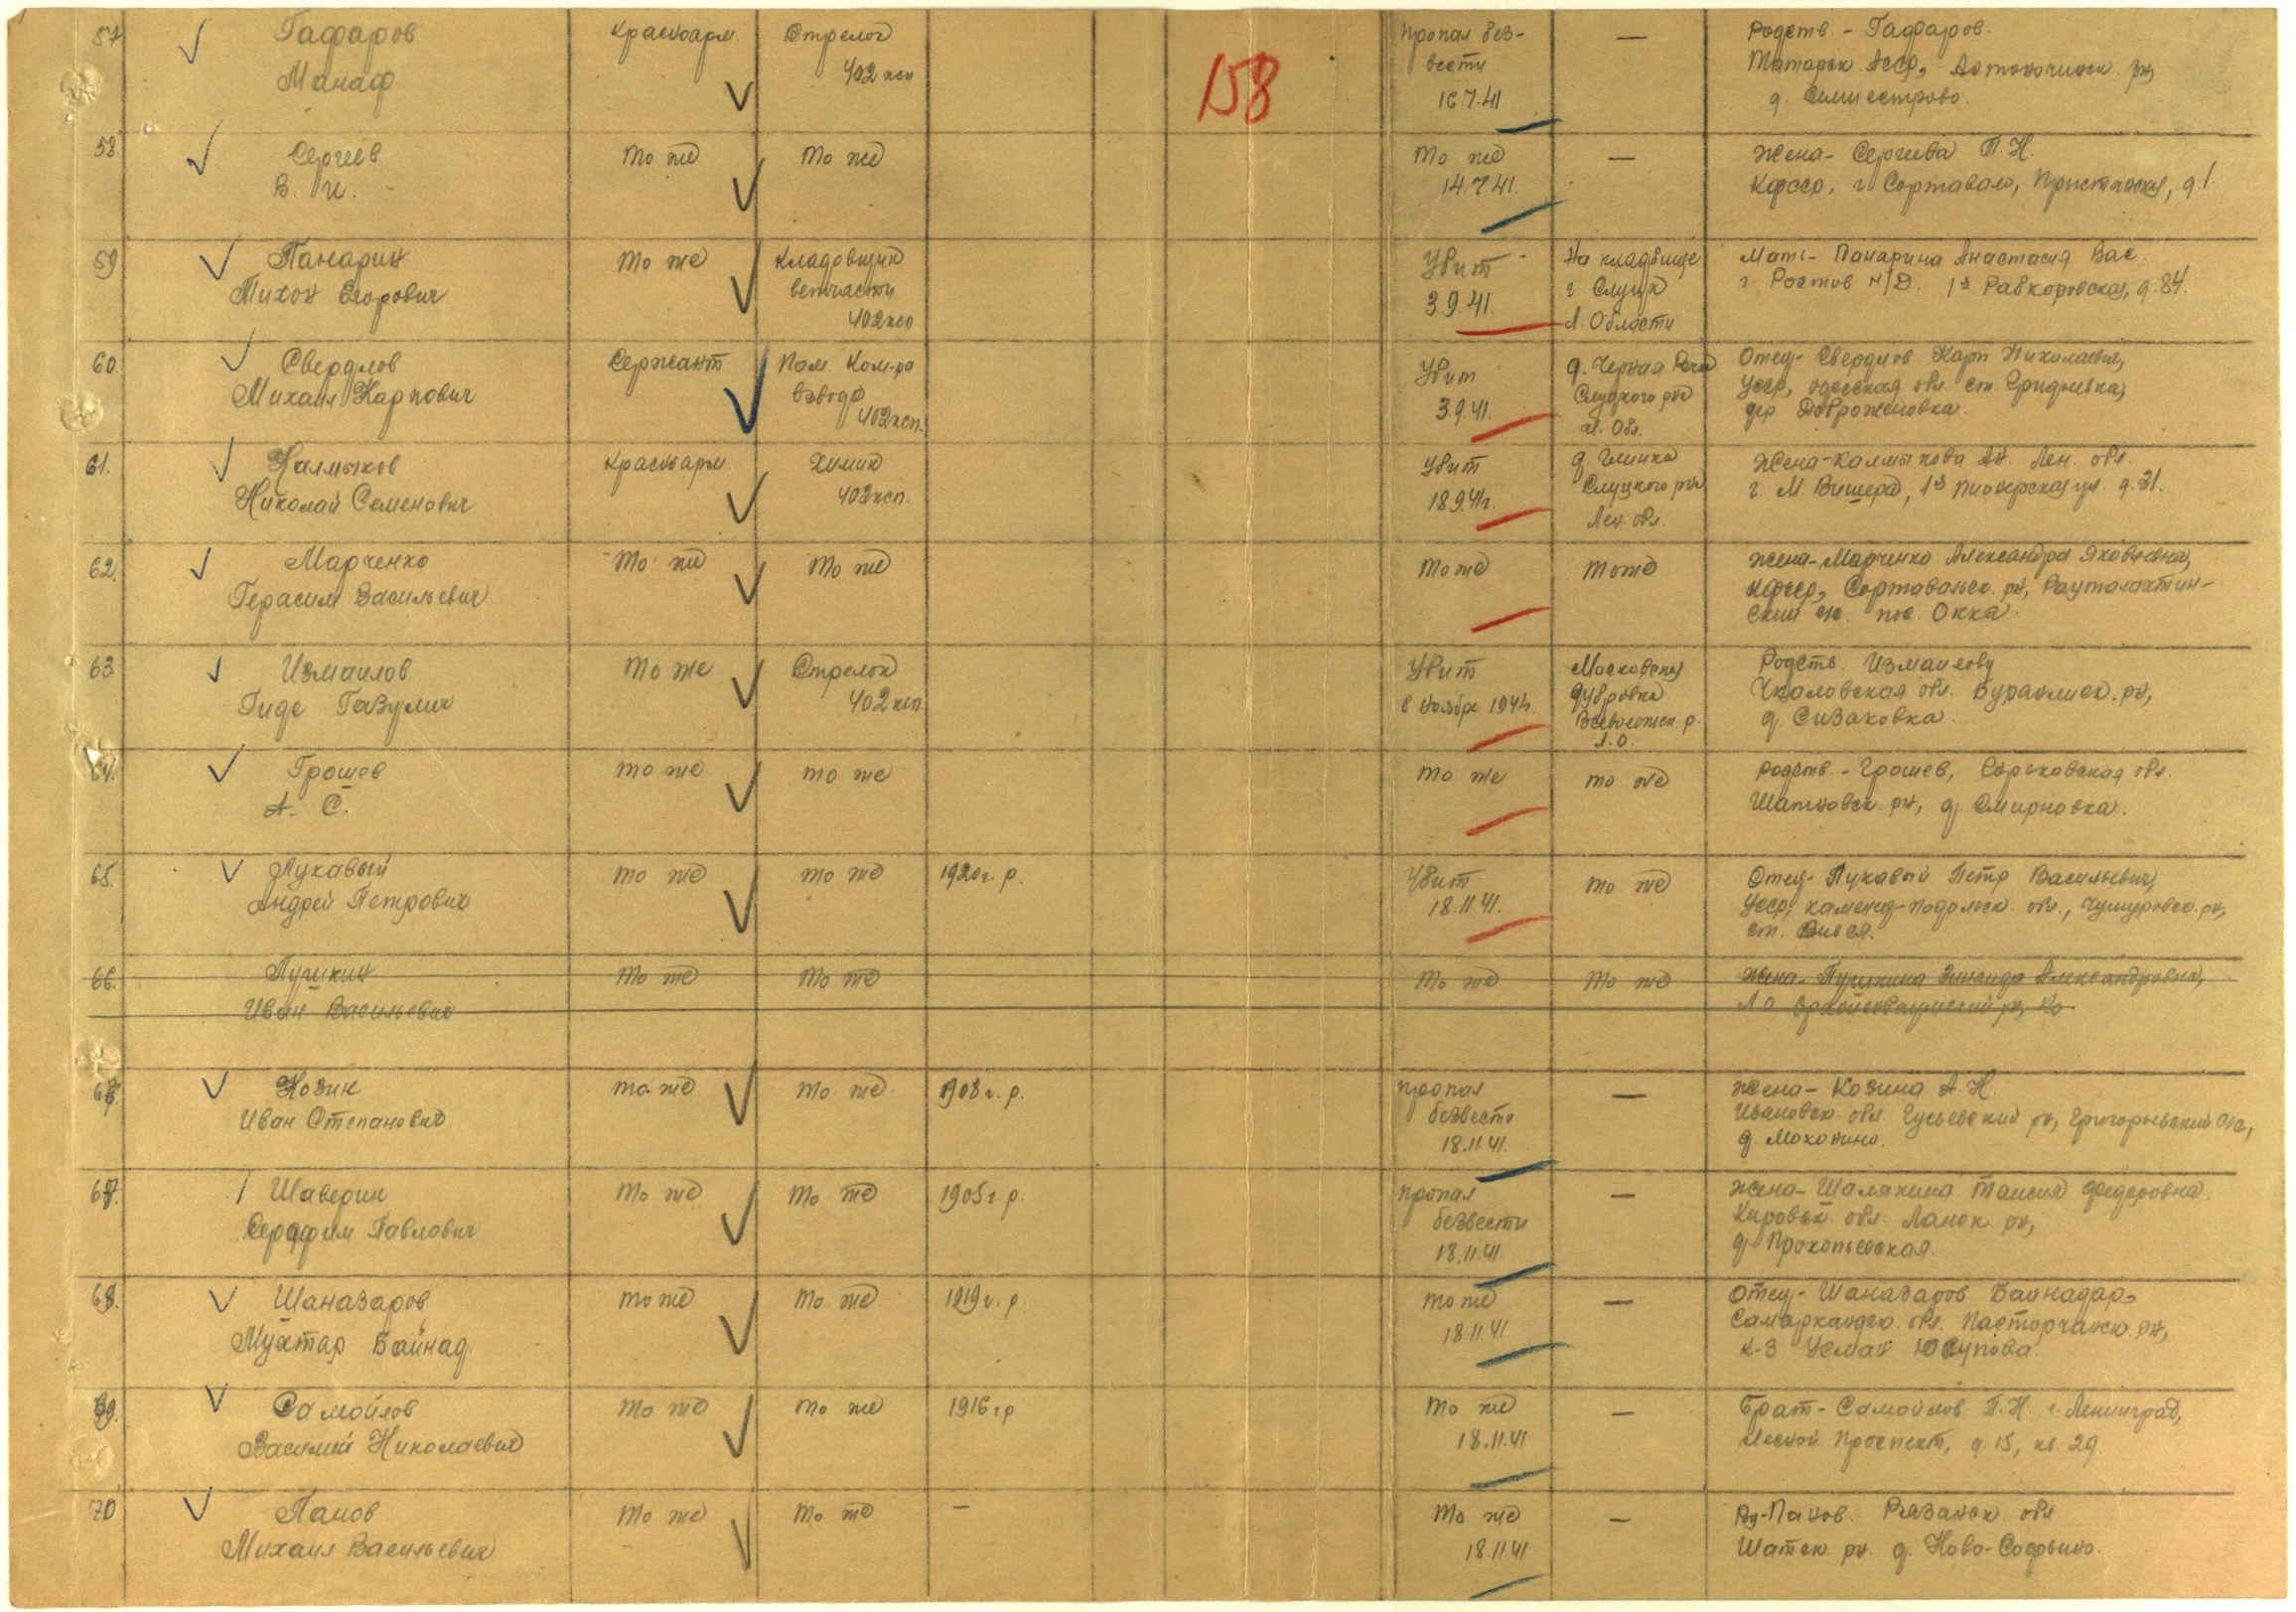 158
57 Гафаров Красноарм. Стрелок Пропал без- — Родств. - Гафаров.
Манаф 402 ксп вести Татарск АССР,
16.7.41 д.
58 Сергеев То же То же То же — Жена - Сергеева П. Н.
В. И. 14.7.41. КФССР, г. Сортавало, Пристанская, д 1.
59 Панарин То же Кладовщик Убит На кладбище Мать - Панарина Анастасия Вас.
Тихон Егорович ветчасти 3.9.41. г. Слуцк г. Ростов н/Д. 1я Рабкоровская, д. 84.
402 ксп Л. Области
60. Свердлов Сержант Пом. Ком-ра Убит д. Черная Речка Отец - Свердлов Карп Николаевич,
Михаил Карпович взвода 3.9.41. Слуцкого р-на УССР, Одесская обл. ст.
402 ксп. Л. Обл. дер Доброженовка.
61. Калмыков Красноарм. Химик Убит д. Глинка Жена - Калмыкова Лен. обл.
Николай Семенович 402 ксп. 18.9.41г. Слуцкого р-на г. М. Вишера, 1я Пионерская ул. д. 31.
Лен. обл.
62. Марченко То же То же То же То же Жена - Марченко Александра Яковлевна,
Герасим Васильевич КФССР, Сортавальск. рн, Рауталахтин-
ский пос. Окка.
63 Измаилов То же Стрелок Убит Московская Родств. Измаилову
Гиде 402 ксп в ноябре 194 Дубровка Чкаловская обл. рн,
Всеволожск. р. д. Сизаковка.
Л.О.
64. Грошев То же То же То же То же Родств. - Грошев, Горьковская обл.
А. С. Шатковск. рн, д. Смирновка.
65. Лукавый То же То же 1920г. р. Убит То же Отец - Лукавый Петр Васильевич,
Андрей Петрович 18.11.41. УССР, Каменец-Подольск. обл., рн,
ст.
66. Пушкин То же То же То же То же Жена - Пушкина Зинаида Александровна,
Иван Васильевич Л О рн,
67. Козин То же То же 1908 г. р. Пропал — Жена - Козина А. Н.
Иван Степанович безвести Ивановск. обл. Гусьевский рн, Григорьевский с/с,
18.11.41. д. Мококино.
67. Шаверин То же То же 1905 г. р. Пропал — Жена - Шалякина Таисия Федоровна.
Серафим Павлович безвести Кировск. обл. рн,
18.11.41 д. Прокопьевская.
68. Шаназаров То же То же 1919 г. р. То же — Отец - Шаназаров Байнадар,
Мухтар Байнад. 18.11.41 Самаркандск. обл. рн,
к-з Усман Юсупова.
69. Самойлов То же То же 1916 г р То же — Брат - Самойлов П. Н. г. Ленинград,
Василий Николаевич 18.11.41 Лесной проспект, д. 15, кв. 29.
70 Панов То же То же — То же — Рд - Панов. Рязанск обл
Михаил Васильевич 18.11.41 Шатск. рн. д.